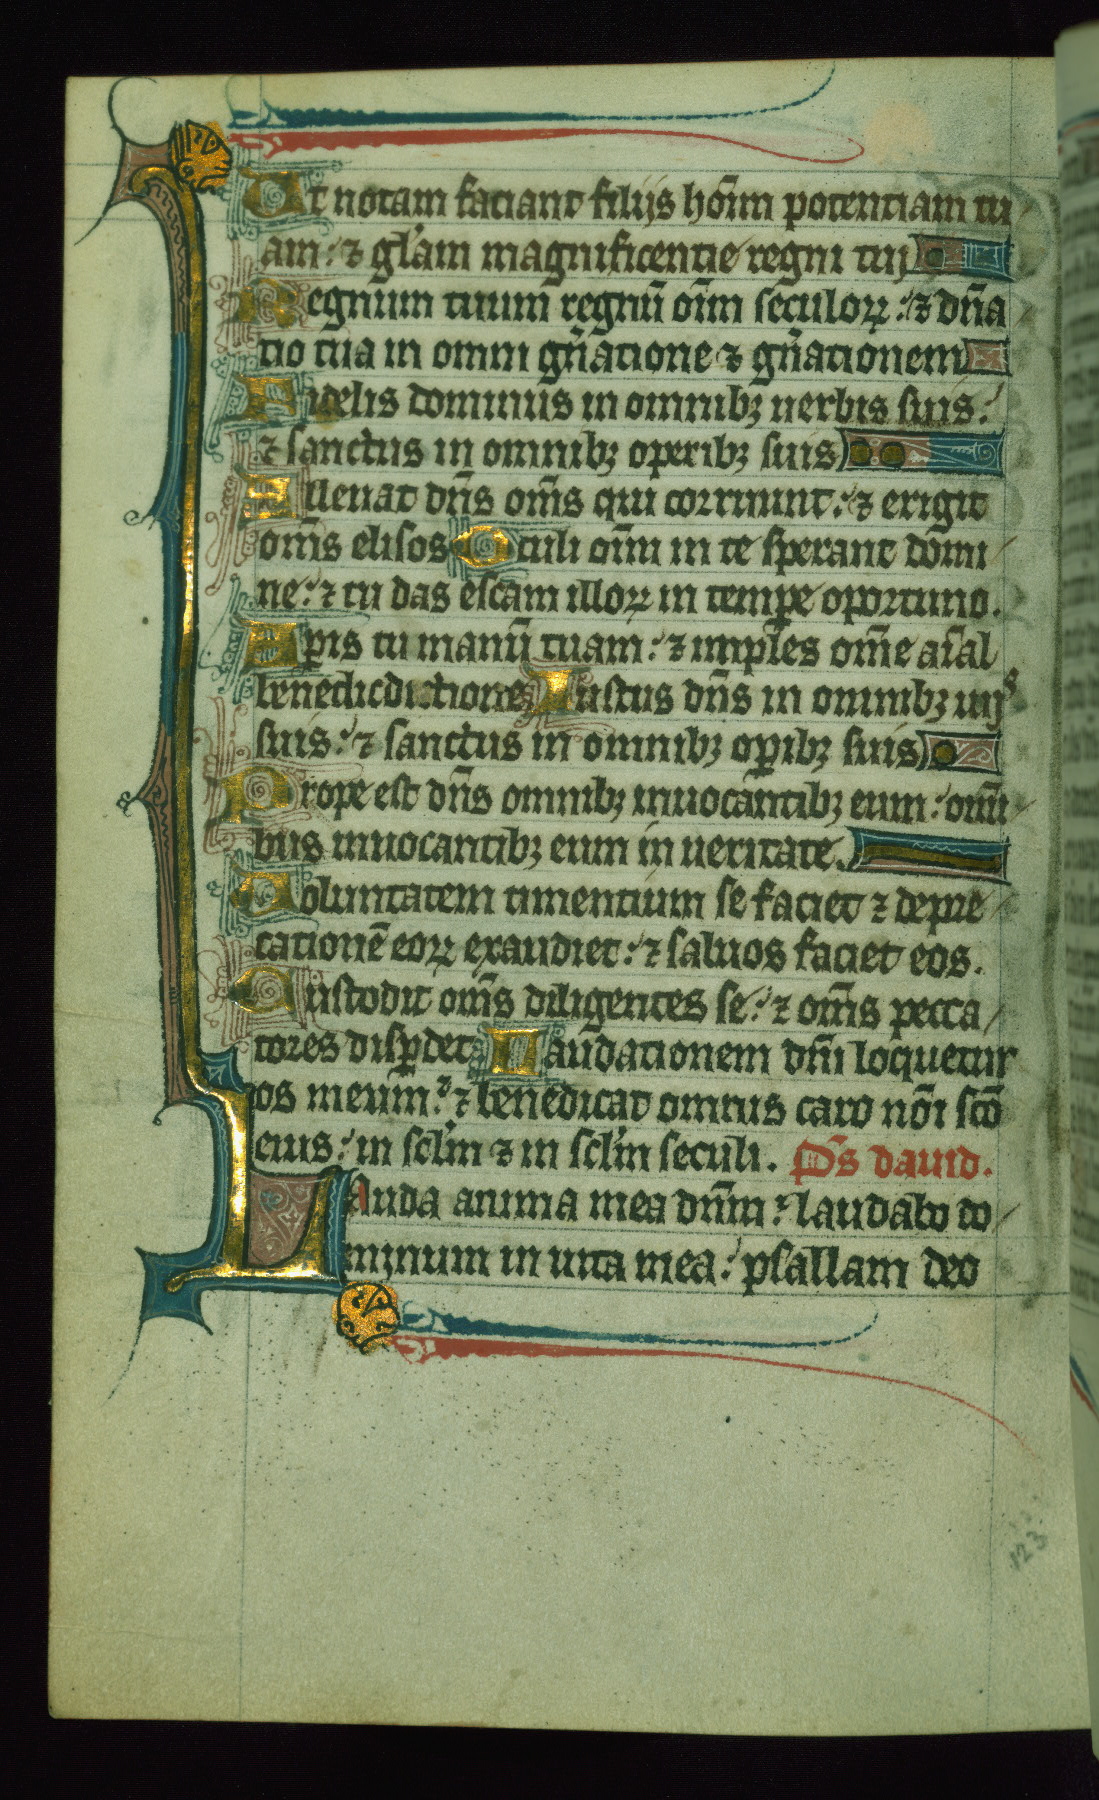 Ut notam faciant filijs hōīm potentiam tu
am: ⁊ gl'am magnificentie regni tui
Regnum tuum regnū oīm seculoꝝ: ⁊ dn̄a
tio tua in omni gn̄atione ⁊ gn̄ationem
Fidelis dominus in omnibꝫ uerbis suis:
⁊ sanctus in omnibꝫ operibꝫ suis
Alleuat dn̄s om̄s qui corruunt: ⁊ erigit
om̄s elisos Oculi oīm in te sperant domi
ne: ⁊ tu das escam illoꝝ in tempe oportuno.
Apis tu manū tuam: ⁊ imples om̄e aīal
benedictione Iustus dn̄s in omnibꝫ uijs
suis: ⁊ sanctus in omnibꝫ oꝑibꝫ suis
Prope est dn̄s omnibꝫ inuocantibꝫ eum: omī
bus inuocantibꝫ eum in ueritate.
Uoluntatem timentium se faciet ⁊ depre
cationē eoꝝ exaudiet: ⁊ saluos faciet eos.
Custodit om̄s diligentes se: ⁊ om̄s pecca
tores disꝑdet Laudationem dn̄i loquetur
os meum: ⁊ benedicat omnis caro nōi scō
eius: in scl'm ⁊ in scl'm seculi. Ps dauid.
Lauda anima mea dn̄m: laudabo do
minum in uita mea: psallam deo
123